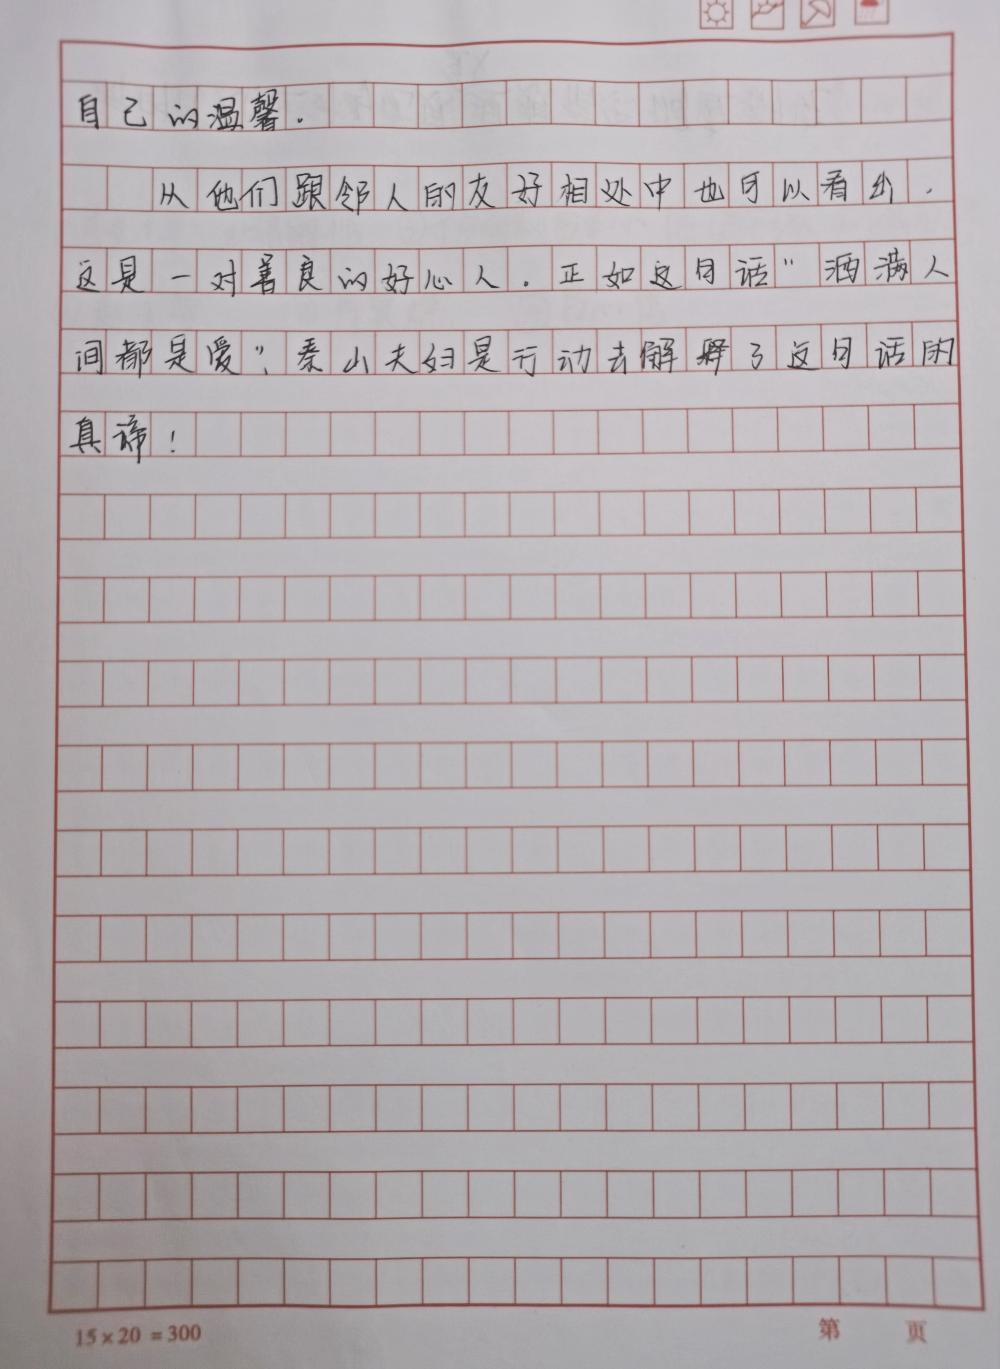 自己的温馨.
从他们跟邻人的友好相处中也可以看出.
这是一对善良的好心人.正如这句话"洒满人
间都是爱",秦山夫妇是行动去解释了这句话的
真谛!
15×20=300
第 页